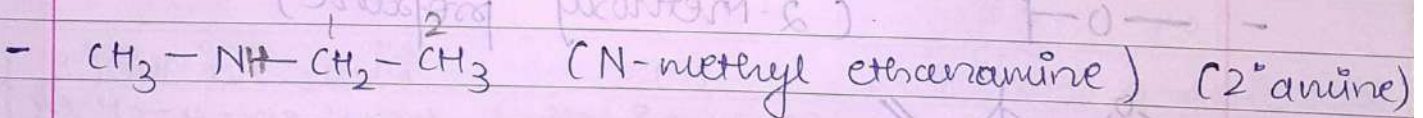 1 2
- CH₃ - NH - CH₂ - CH₃ (N-methyl ethanamine) (2° amine)